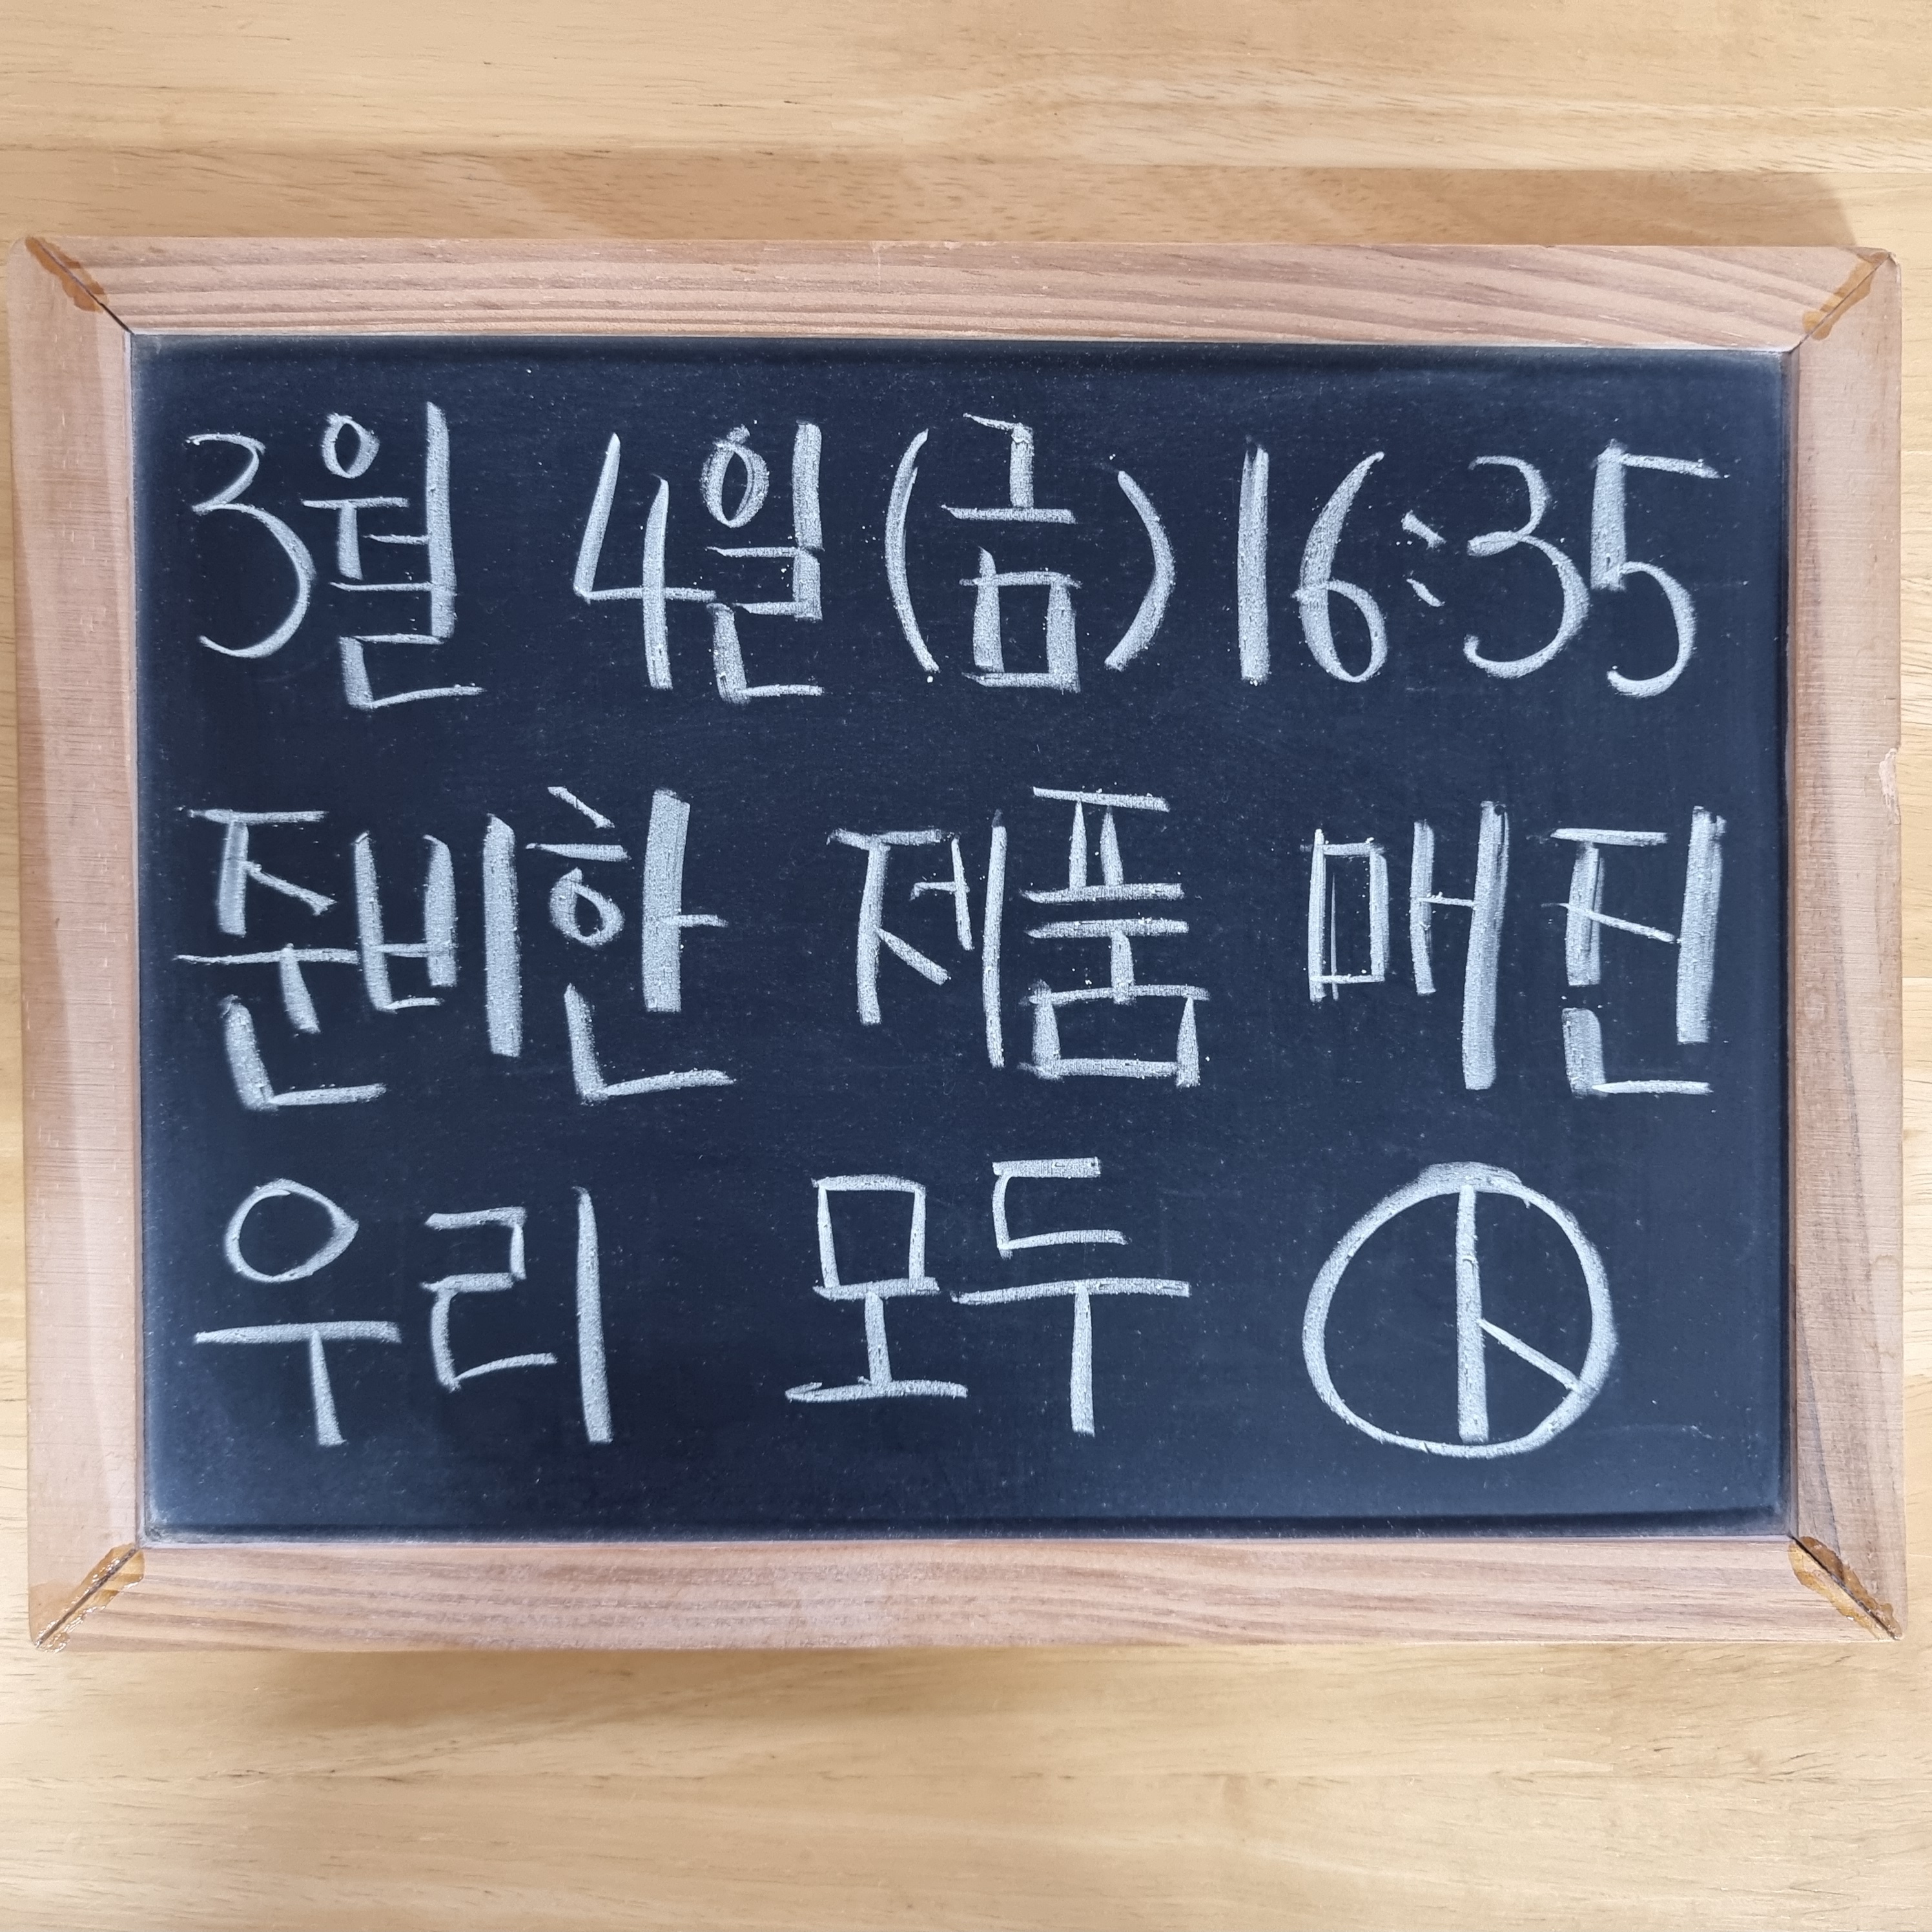 3월 4일(금)16:35
준비한 제품 매진
우리 모두